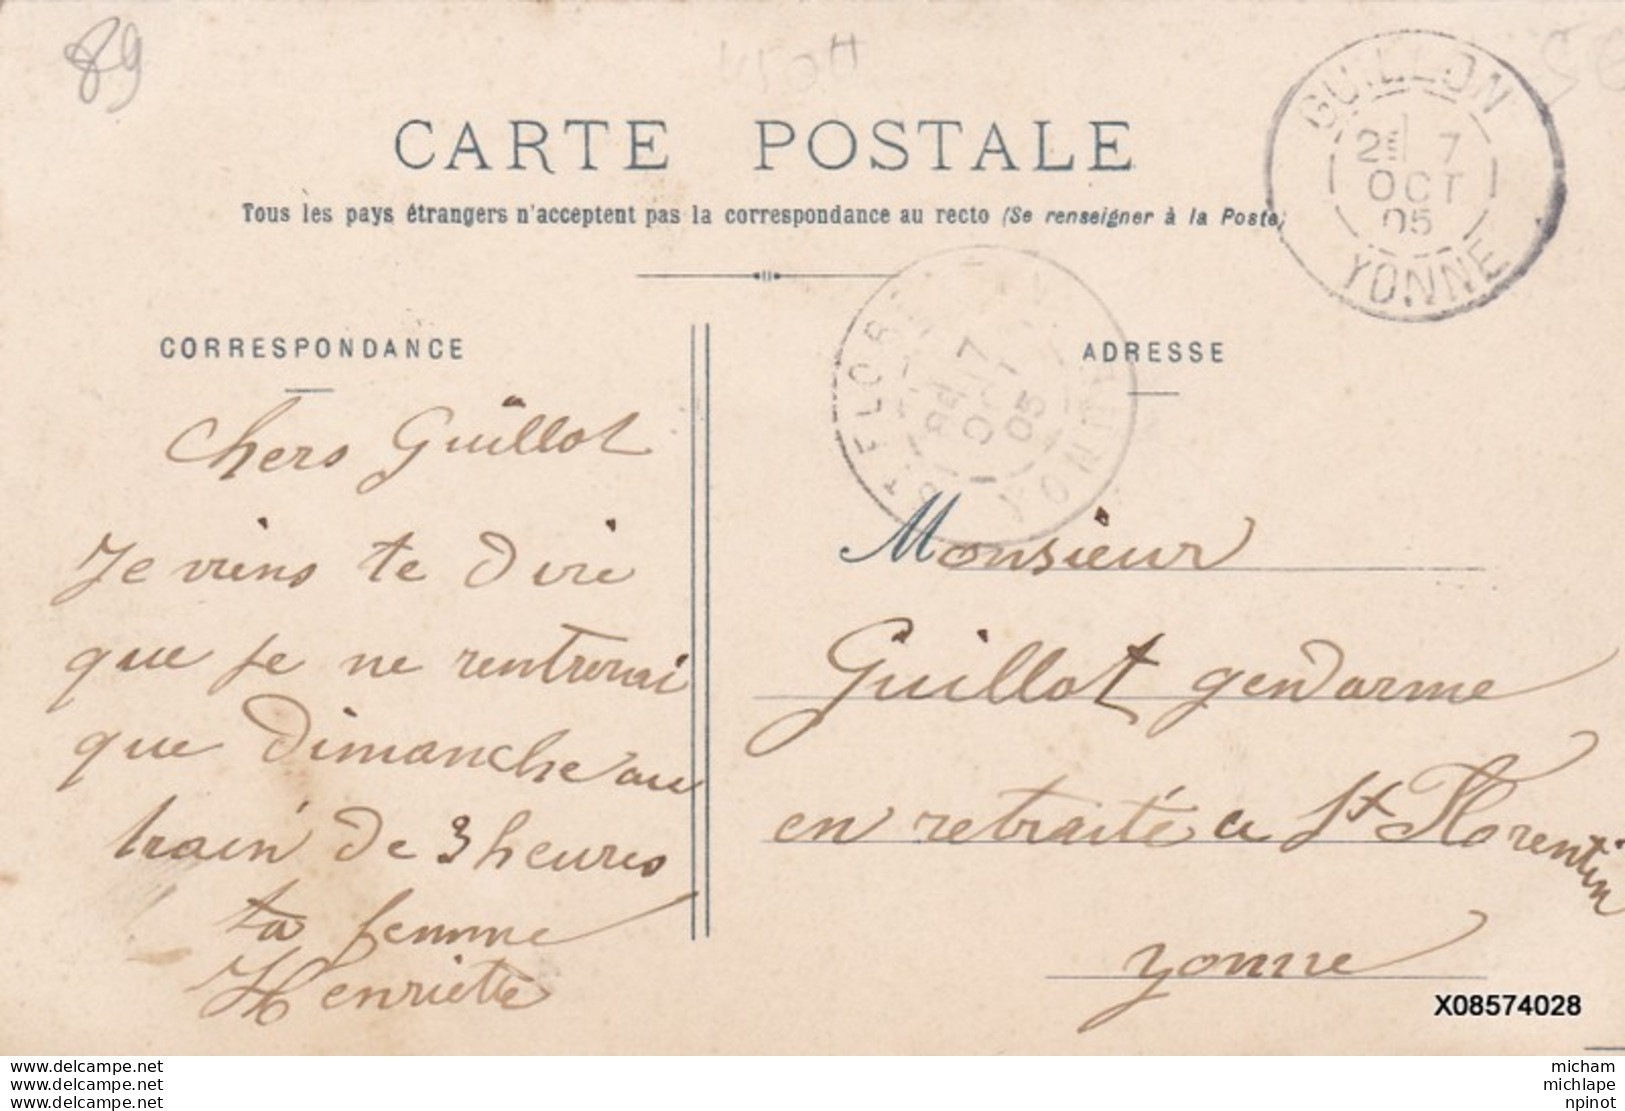 89
CARTE POSTALE
Tous les pays étrangers n'acceptent pas la correspondance au recto (Se renseigner à la Poste)
GUILLON
7
OCT
05
YONNE
CORRESPONDANCE
Chers Guillot
Je viens te dire
que je ne rentrerai
que dimanche au
train de 3 heures
ta femme
Henriette
7
OCT
05
YONNE
ADRESSE
Monsieur
Guillot gendarme
en retraité a St Florentin
yonne
X08574028
www.delcampe.net
www.delcampe.net
www.delcampe.net
micham
michlape
npinot